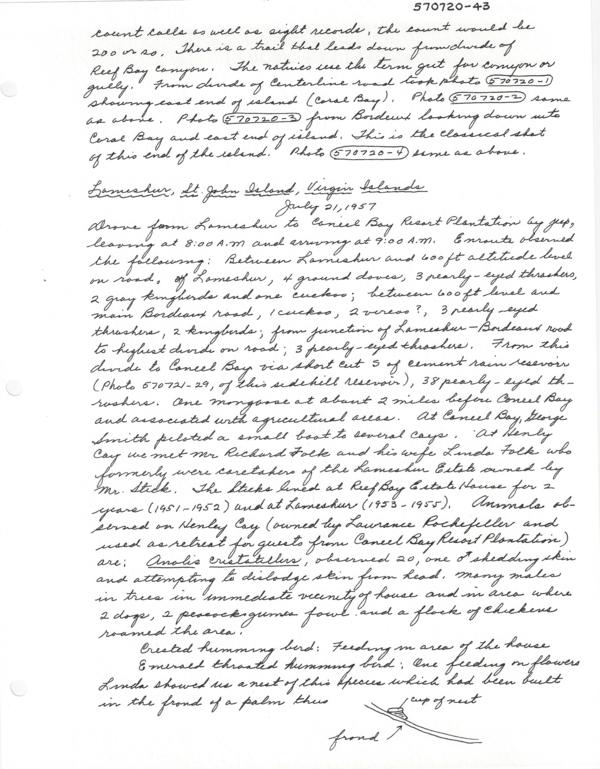 570720-43
count calls as well as sight records, the count would be
200 or so. There is a trail that leads down from divide of
Reef Bay canyon. The natives use the term gut for canyon or
gully. From divide of Centerline road took photo 570720-1
showing east end of island (Coral Bay). Photo 570720-2 same
as above. Photo 570720-3 from Bordeux looking down into
Coral Bay and east end of island. This is the classical shot
of this end of the island. Photo 570720-4 same as above.
Lameshur, St. John Island, Virgin Islands
July 21, 1957
Drove from Lameshur to Caneel Bay Resort Plantation by jeep,
leaving at 8:00 A.M and arriving at 9:00 A.M. Enroute observed
the following: Between Lameshur and 600 ft altitude level
on road, of Lameshur, 4 ground doves, 3 pearly-eyed thrashers,
2 gray kingbirds and one cuckoo; between 600 ft level and
main Bordeaux road, 1 cuckoo, 2 vireos?, 3 pearly-eyed
thrashers, 2 kingbirds; from junction of Lameshur-Bordeaux road
to highest divide on road; 3 pearly-eyed thrashers. From this
divide to Caneel Bay via short cut S of cement rain resevoir
(Photo 570721-29, of this sidehill resevoir), 38 pearly-eyed th-
rashers. One mongoose at about 2 miles before Caneel Bay
and associated with agricultural areas. At Caneel Bay, George
Smith piloted a small boat to several cays. At Henly
Cay we met Mr Richard Folk and his wife Linda Folk who
formerly were caretakers of the Lameshur Estate owned by
Mr. Stick. The Sticks lived at Reef Bay Estate House for 2
years (1951-1952) and at Lameshur (1953-1955). Animals ob-
served on Henley Cay (owned by Laurance Rockefeller and
used as retreat for guests from Caneel Bay Resort Plantation)
are: Anolis cristatellus, observed 20, one ♂ shedding skin
and attempting to dislodge skin from head. Many males
in trees in immediate vicinity of house and in area where
2 dogs, 2 peacocks, guinea fowl and a flock of chickens
roamed the area.
Crested humming bird: Feeding in area of the house
Emerald throated humming bird: One feeding on flowers
Linda showed us a nest of this species which had been built
in the frond of a palm thus
cup of nest
frond